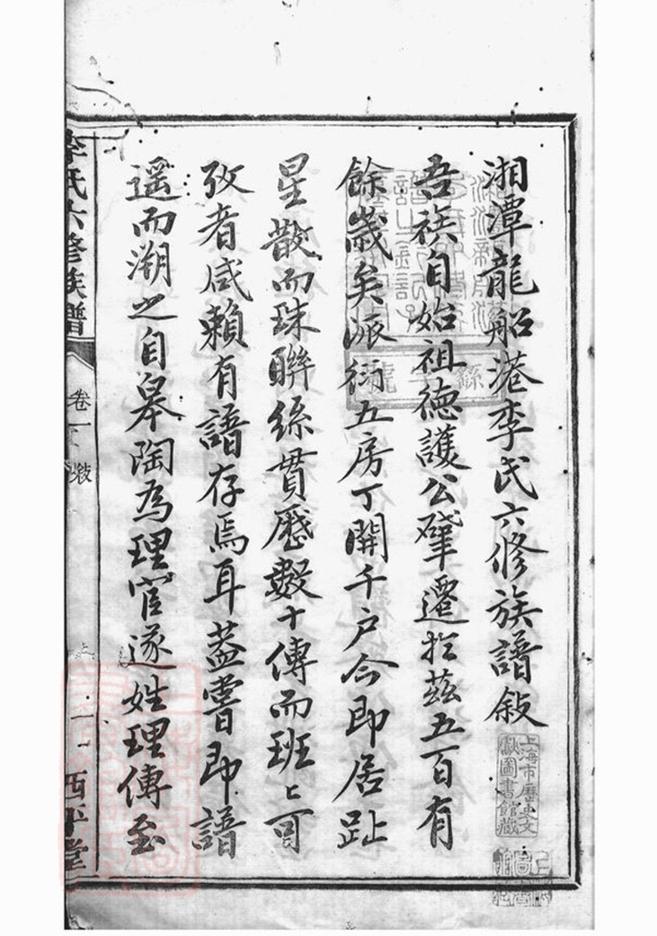 湘潭龍船港李氏六修族譜敍
吾族自始祖德護公肇遷於茲五百有
餘歲矣派衍五房丁開千戶今即居趾
星散而珠聯絲貫歷數十傳而班〻可
攷者咸賴有譜存焉耳蓋嘗即譜
遥而溯之自皋陶為理官遂姓理傳至
李氏六修族譜
卷一 敍
一
西平堂
上海市歷史文
獻圖書館藏